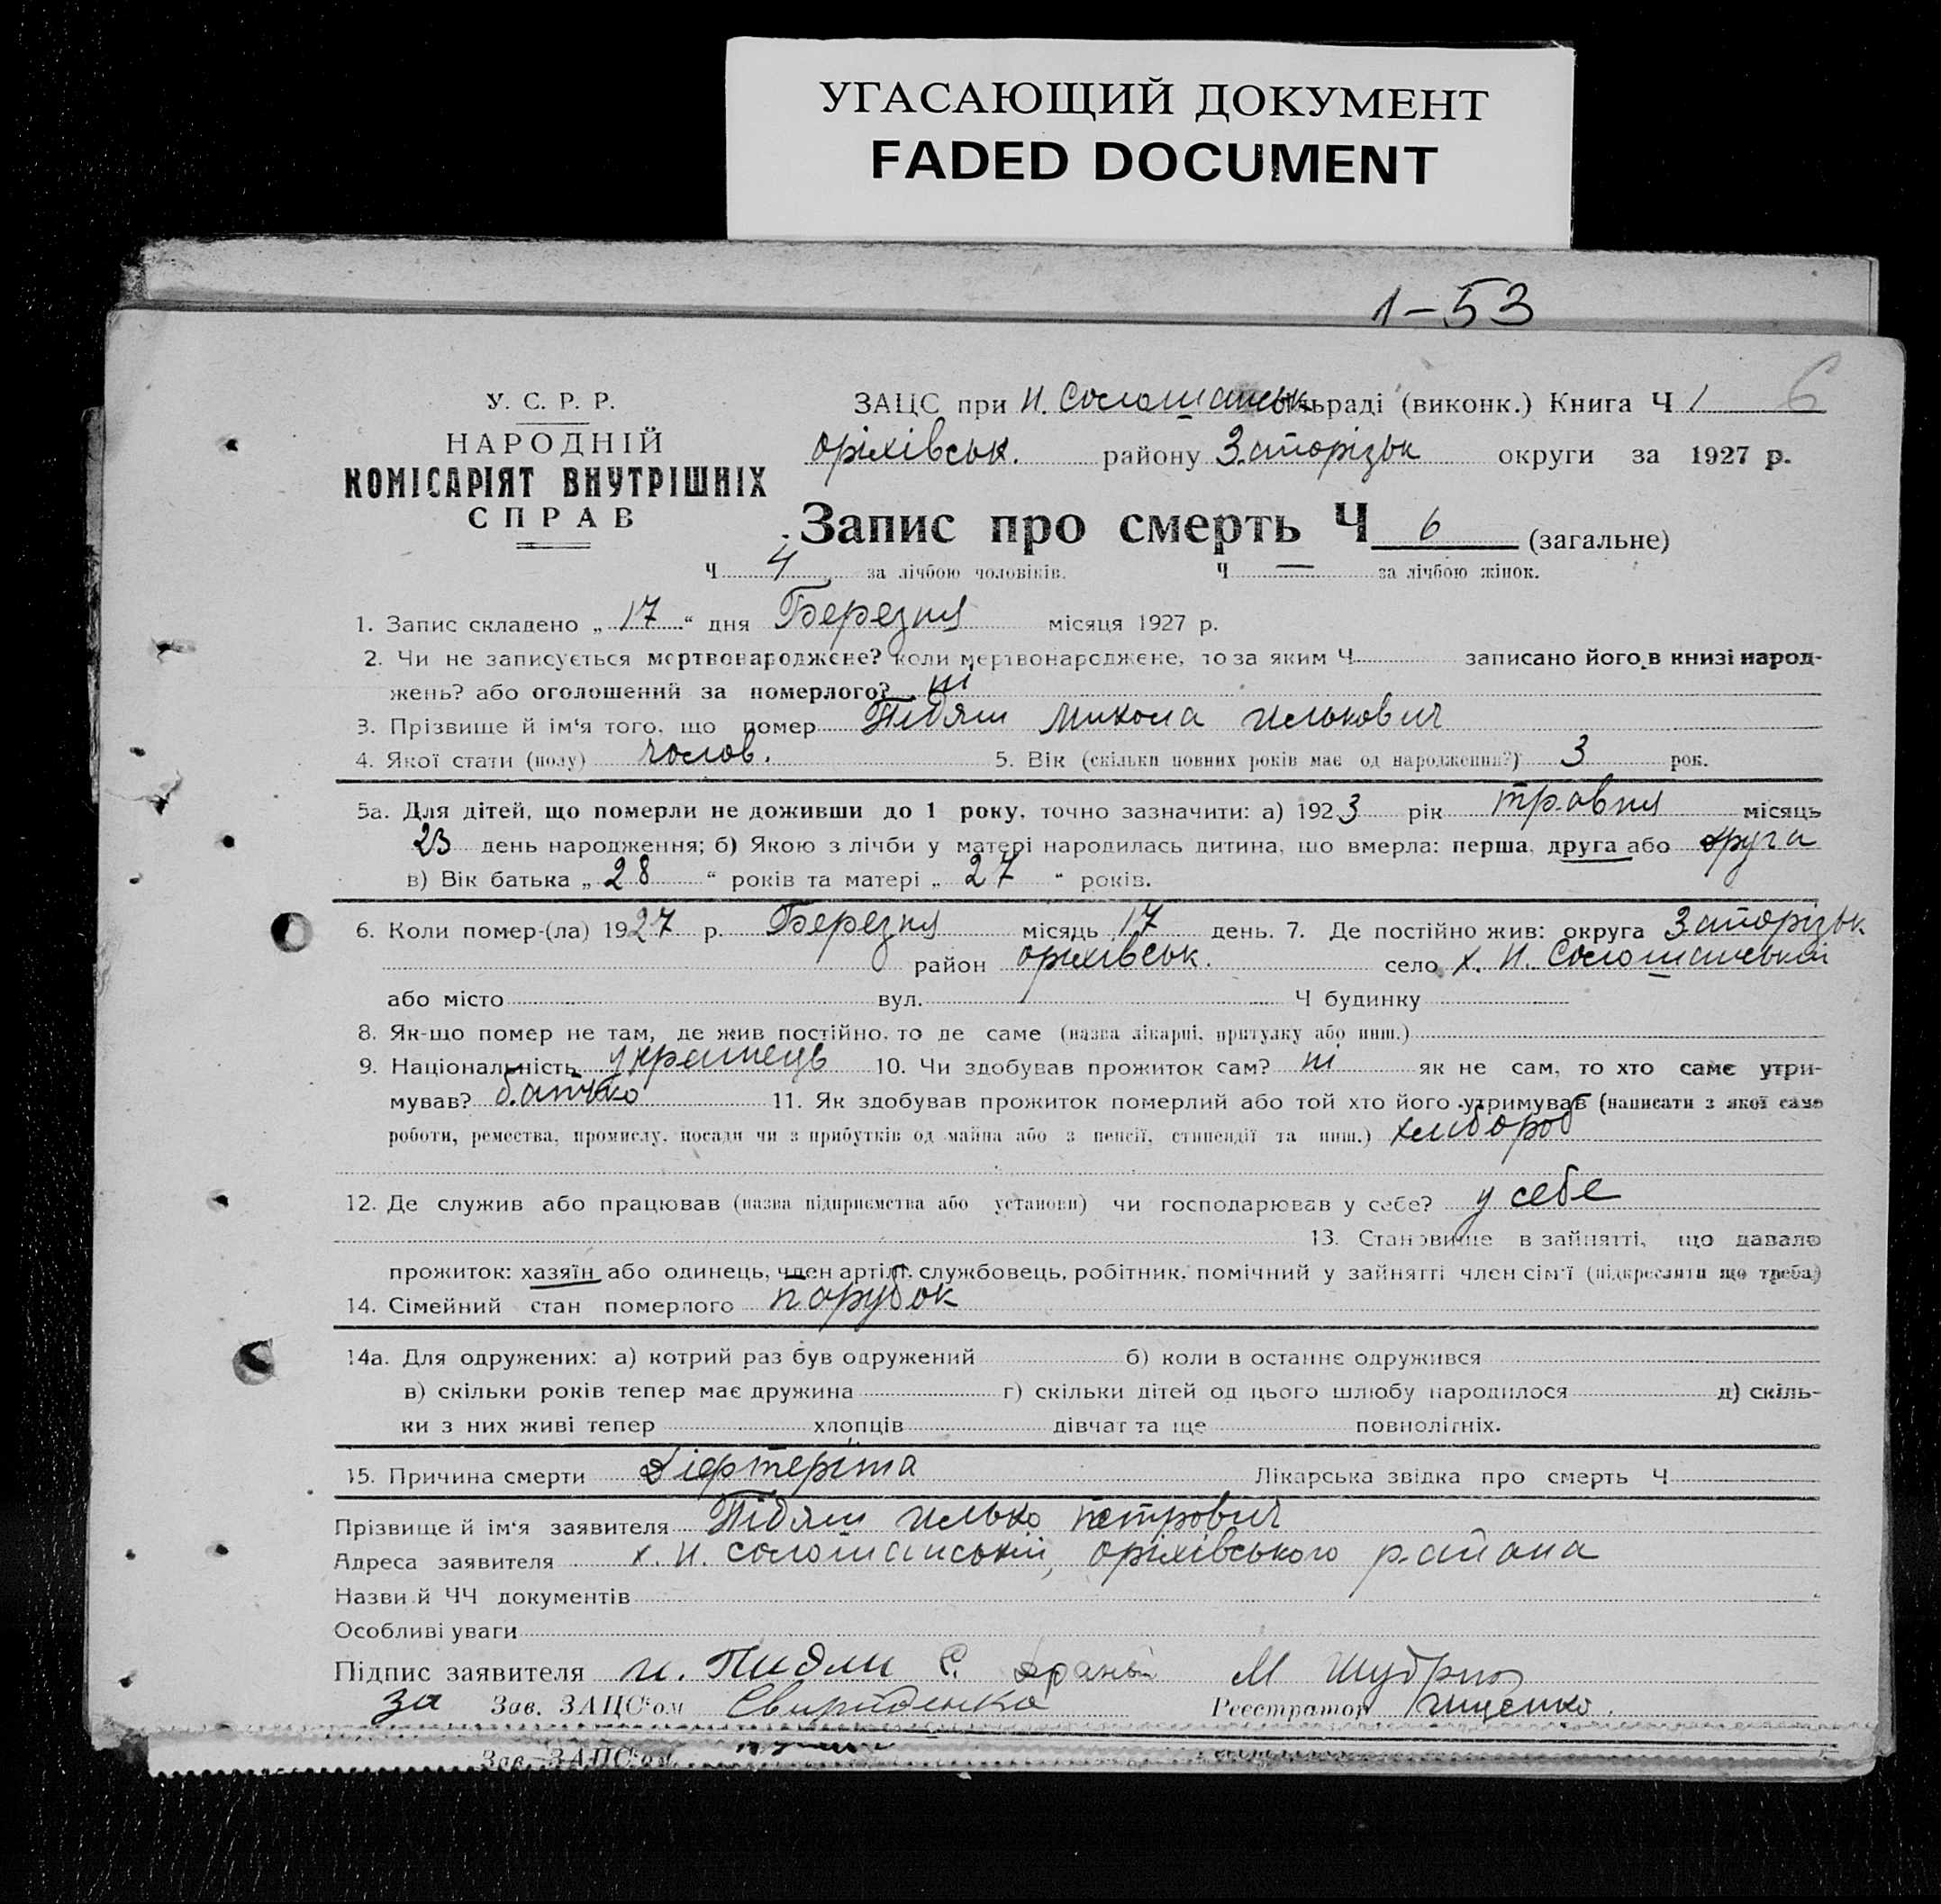 УГАСАЮЩИЙ ДОКУМЕНТ
FADED DOCUMENT
1-53
У. С. Р. Р.
НАРОДНІЙ
КОМІСАРІЯТ ВНУТРІШНІХ
СПРАВ
ЗАЦС при Н. Солошанськ льраді (виконк.) Книга Ч 1 6
Оріхівськ. району Запорізьк округи за 1927 р.
Запис про смерть Ч 6 (загальне)
Ч 4 за лічбою чоловіків. Ч — за лічбою жінок.
1. Запис складено „ 17 “ дня Березня місяця 1927 р.
2. Чи не записується мертвонароджене? коли мертвонароджене, то за яким Ч записано його в книзі народ-
жень? або оголошений за померлого? ні
3. Прізвище й ім‘я того, що помер Підяш Микола Илькович
4. Якої стати (полу) чолов. 5. Вік (скільки повних років має од народження?) 3 рок.
5а. Для дітей, що померли не доживши до 1 року, точно зазначити: а) 1923 рік травня місяць
23 день народження; б) Якою з лічби у матері народилась дитина, що вмерла: перша, друга або друга
в) Вік батька „ 28 “ років та матері „ 27 “ років.
6. Коли помер-(ла) 1927 р. Березня місяць 17 день. 7. Де постійно жив: округа Запорізьк
район Оріхівськ. село х. Н. Солошанський
або місто вул. Ч будинку
8. Як-що помер не там, де жив постійно, то де саме (назва лікарні, притулку або инш.)
9. Національність украінець 10. Чи здобував прожиток сам? ні як не сам, то хто саме утри-
мував? батько 11. Як здобував прожиток померлий або той хто його утримував (написати з якої само
роботи, ремества, промислу, посади чи з прибутків од майна або з пенсії, стипендії та инш.) хлибороб
12. Де служив або працював (назва підприємства або установи) чи господарював у себе? у себе
13. Становище в зайнятті, що давало
прожиток: хазяїн або одинець, член артілі, службовець, робітник, помічний у зайнятті член сім‘ї (підкреслити що треба)
14. Сімейний стан померлого парубок
14а. Для одружених: а) котрий раз був одружений б) коли в останнє одружився
в) скільки років тепер має дружина г) скільки дітей од цього шлюбу народилося д) скіль-
ки з них живі тепер хлопців дівчат та ще повнолітніх.
15. Причина смерти Діфтеріта Лікарська звідка про смерть Ч
Прізвище й ім‘я заявителя Підяш Илько Петрович
Адреса заявителя х. Н. Солошанський, Оріхівського района
Назви й ЧЧ документів
Особливі уваги
Підпис заявителя И. Пидяш С. М
за Зав. ЗАЦС‘ом Свириденко Реєстратор Ищенко.
Зав. ЗАЦС‘ом